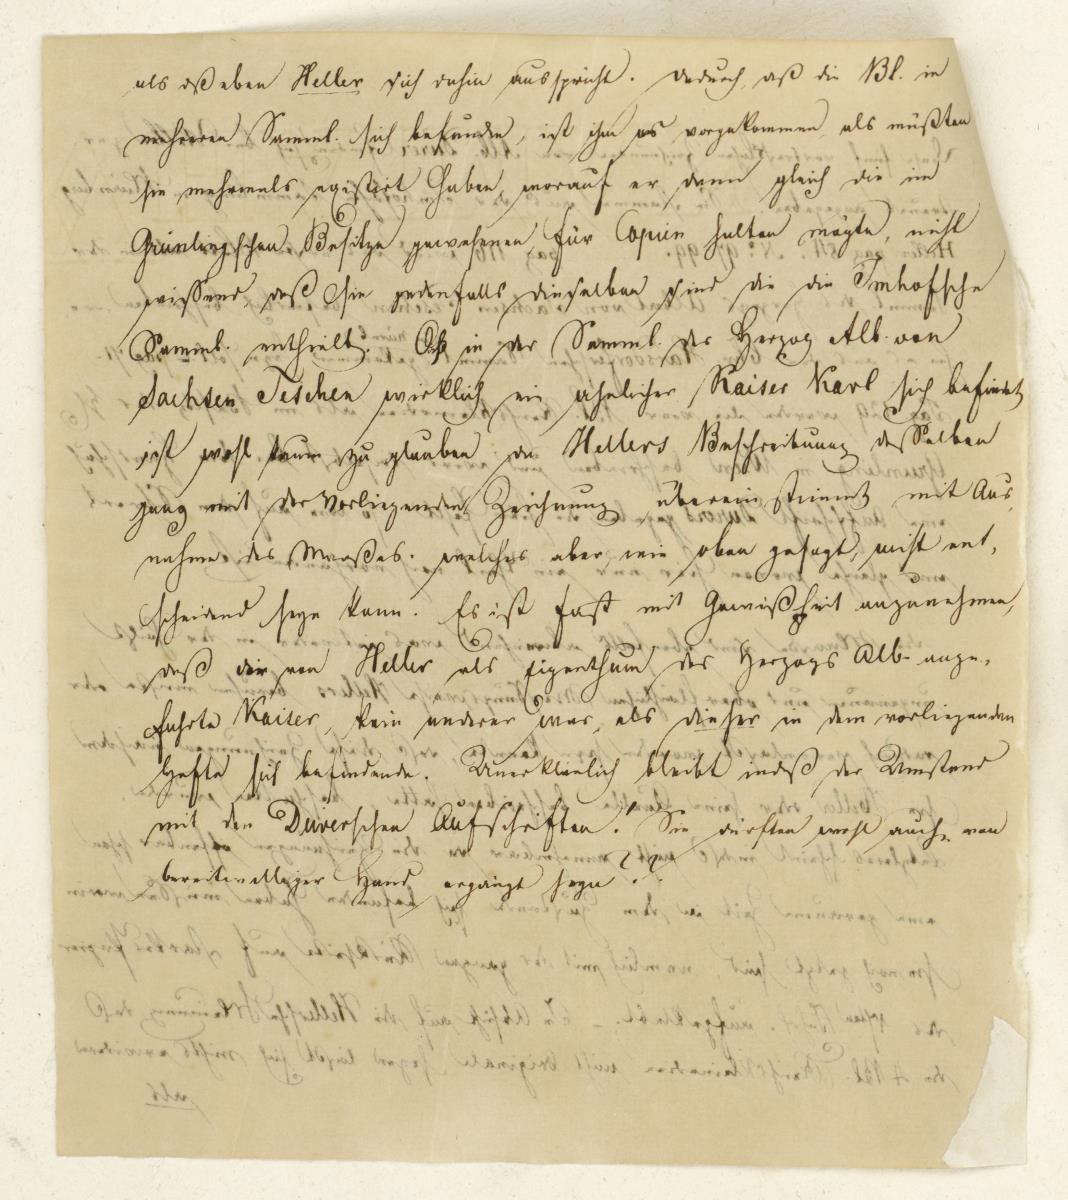 als daß eben Heller sich dahin ausspricht. Dadurch, daß die Bl. in
mehreren Samml. sich befunden, ist ihm es vorgekommen als müßten
sie mehrmals existirt haben, worauf er dann gleich die im
Grünlingschen Besitze gewesenen für Copien halten mögte, nicht
wissend, daß sie jedenfalls dieselben sind die die Imhofsche
Samml. enthielt. Ob in der Samml. des Herzog Alb. von
Sachsen Teschen wirklich ein ähnlicher Kaiser Karl sich befindet
ist wohl kaum zu glauben da Hellers Beschreibung desselben
ganz mit der vorliegenden Zeichnung übereinstimmt mit Aus,
nahme des Maaßes. welches aber, wie oben gesagt, nicht ent,
scheidend seyn kann. Es ist fast mit Gewißheit anzunehmen,
daß der von Heller als Eigenthum des Herzogs Alb. ange,
fuhrte Kaiser, kein anderer war, als dieser in dem vorliegenden
Hefte sich befindende. Unerklärlich bleibt indeß der Umstand
mit den Dürerschen Aufschriften! Sie dürften wohl auch von
bereitwilliger Hand ergänzt seyn??